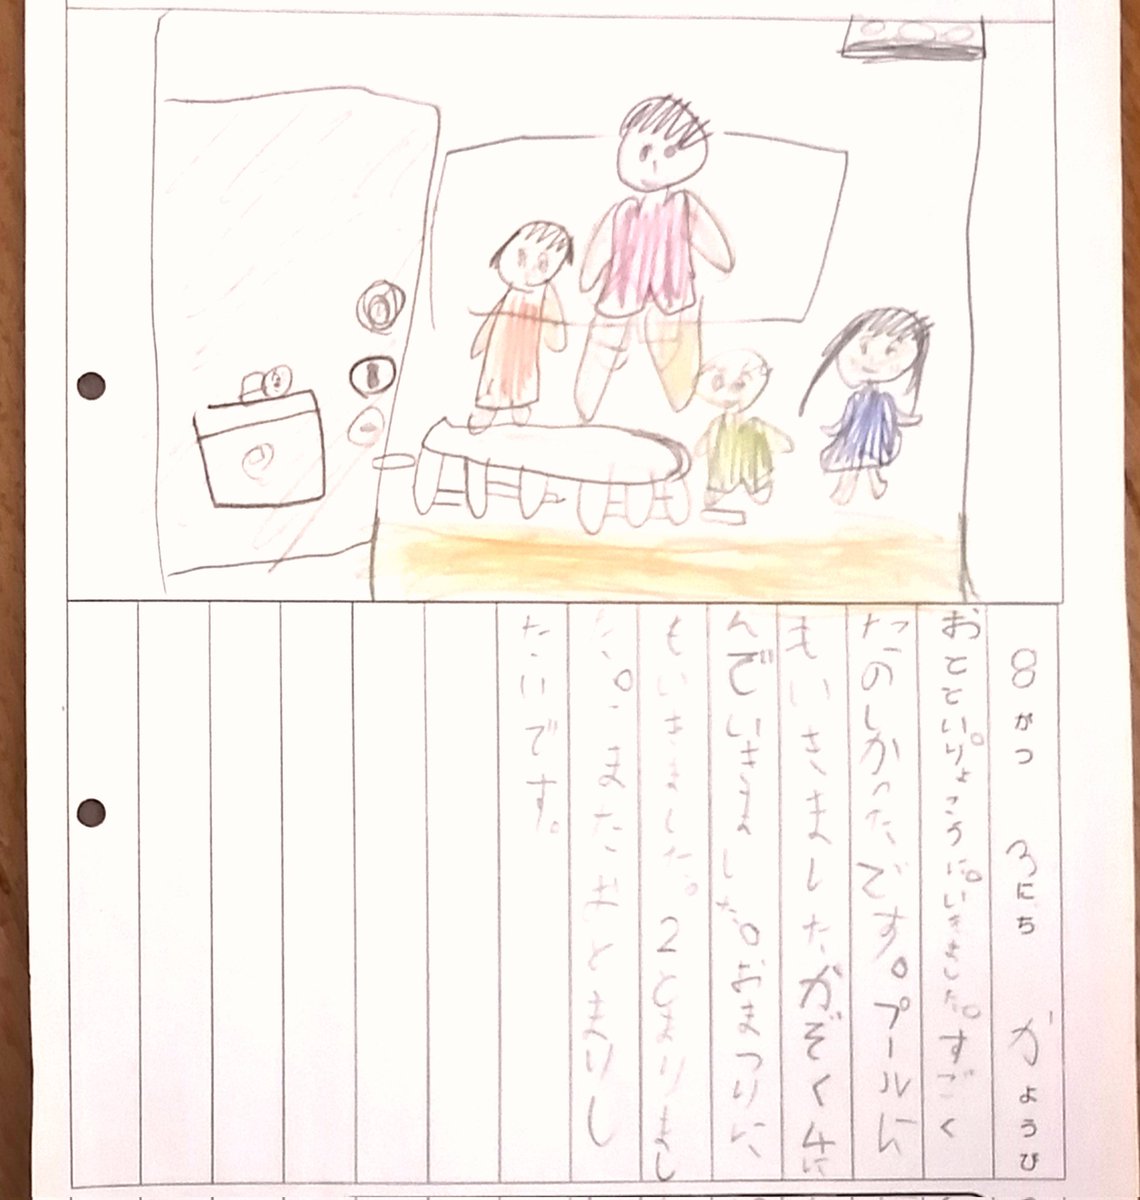 8がつ 3にち かようび
おとといりょこうにいきました。すごく
たのしかったです。プールに
もいきましたかぞく4に
んでいきました。おまつりに
もいきました。2とまりまし
た。また とまりし
たいです。